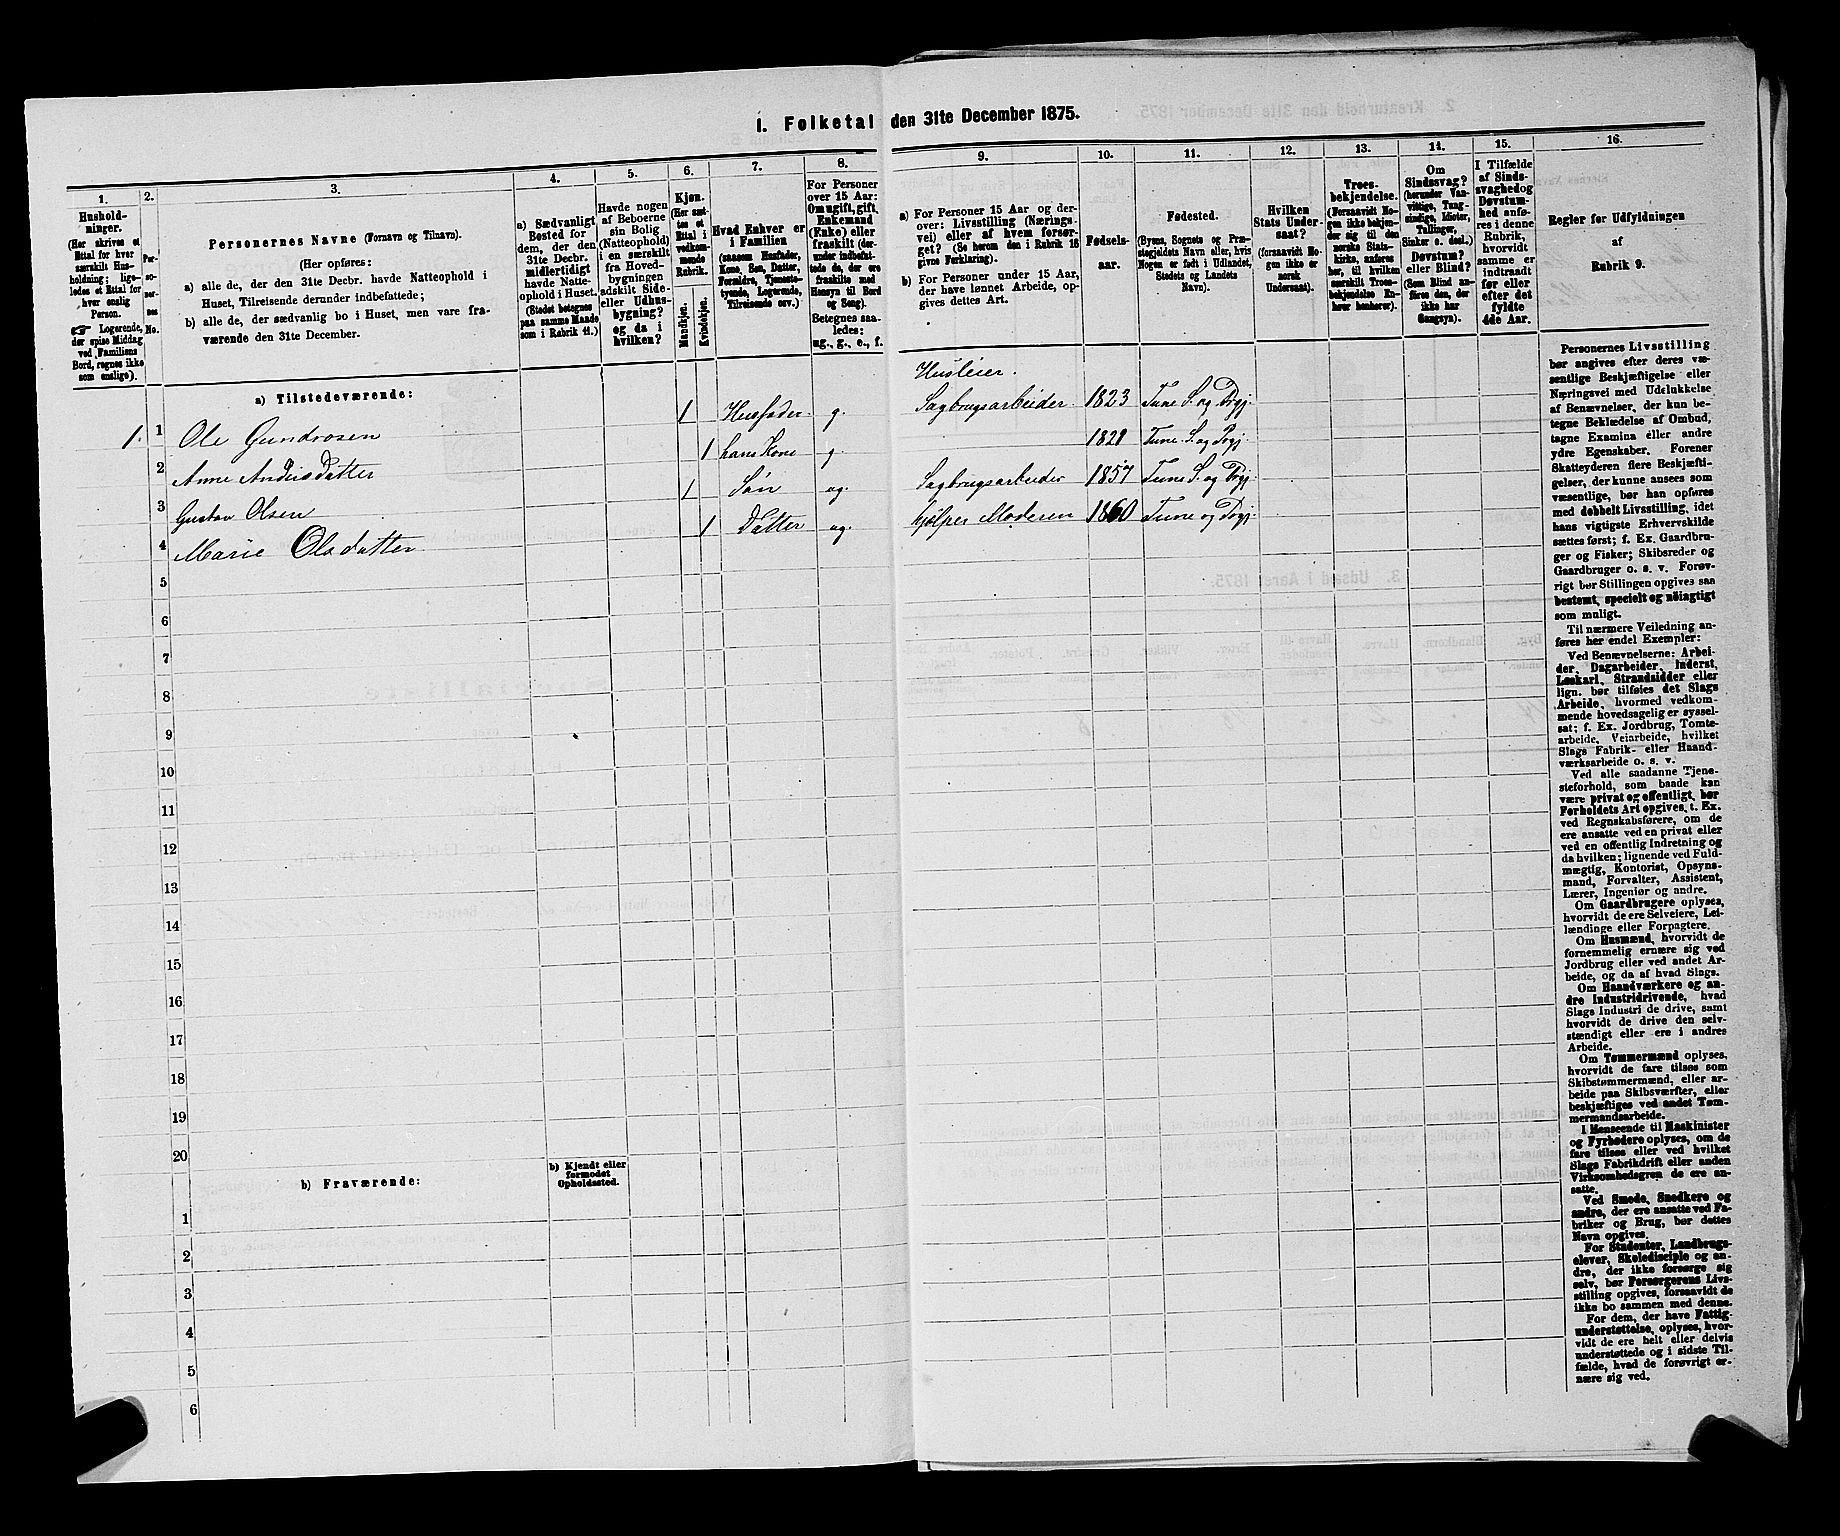 1. Folketal den 31te December 1875.
1.
Hushold-
ninger.
(Her skrives et
Ettal for hver
særskilt Hus-
holdning; lige-
ledes et Ettal for
hver enslig
Person.
☞ Logerende,
der spise Middag
ved Familiens
Bord, regnes ikke
som enslige).
2.
Per-
so-
ner-
nes
No.
3.
Personernes Navne (Fornavn og Tilnavn).
(Her opføres:
a) alle de, der den 31te Decbr. havde Natteophold i
Huset, Tilreisende derunder indbefattede;
b) alle de, der sædvanlig bo i Huset, men vare fra-
værende den 31te December.
4.
a) Sædvanligt
Bosted for
dem, der den
31te Decbr.
midlertidigt
havde Natte-
ophold i Huset.
(Stedet betegnes
paa samme Maade
som i Rubrik 11.)
5.
Havde nogen
af Beboerne
sin Bolig
(Natteophold)
i en særskilt
fra Hoved-
bygningen
adskilt Side-
eller Udhus-
bygning?
og da i
hvilken?
6.
Kjøn.
(Her sæt-
tes et
Ettal i
vedkom-
mende
Rubrik.
Mandkjøn.
Kvindekjøn.
7.
Hvad Enhver er
i Familien
(saasom Husfader,
Kone, Søn, Datter,
Forældre, Tjeneste-
tyende, Logerende,
Tilreisende osv.)
8.
For Personer
over 15 Aar:
Om ugift, gift,
Enkemand
(Enke) eller
fraskilt (der-
under indbefat-
tede de, der ere
fraskilte med
Hensyn til Bord
og Seng).
Betegnes saa-
ledes:
ug., g., e., f.
9.
a) For Personer 15 Aar og der-
over: Livsstilling (Nærings-
vei) eller af hvem forsør-
get? (Se herom den i Rubrik 16
givne Forklaring).
b) For Personer under 15 Aar,
der have lønnet Arbeide, op-
gives dettes Art.
10.
Fødsels-
aar.
11.
Fødested.
(Byens, Sognets og Præ-
stegjeldets Navn eller, hvis
Nogen er født i Udlandet,
Stedets og Landets
Navn).
12.
Hvilken
Stats Under-
saat?
(forsaavidt No-
gen ikke er
norsk
Undersaat).
13.
Troes-
bekjendelse.
(Forsaavidt No-
gen ikke bekjen-
der sig til den
norske Stats-
kirke, anføres
her, til hvilken
særskilt Troes-
bekjendelse En-
hver henhører).
14.
Om
Sindssvag?
(herunder Van-
vittige, Tung-
sindige, Idioter,
Tullinger,
Sinker o. desl.)
Døvstum?
eller Blind?
(Som Blind an-
føres den, der
ikke har
Gangsyn).
15.
I Tilfælde
af Sinds-
svaghed og
Døvstum-
hed anfø-
res i denne
Rubrik,
hvorvidt
samme er
indtraadt
før eller
efter det
fyldte
4de Aar.
16.
Regler for Udfyldningen
af
Rubrik 9.
a) Tilstedeværende:
Husleier.
1. 1 Ole Gundrosen 1 Husfader g. Sagbrugsarbeider 1823 Tune S. og Prgj.
2 Anne Andersdatter 1 hans Kone g. 1821 Tune S. og Prgj.
3 Gustav Olsen 1 Søn ug. Sagbrugsarbeider 1857 Tune S. og Prgj.
4 Marie Olsdatter 1 Datter ug. hjelper Moderen 1860 Tune og Prgj.
5
6
7
8
9
10
11
12
13
14
15
16
17
18
19
20
b) Fraværende:
b) Kjendt eller
formodet
Opholdssted.
1
2
3
4
5
6
Personernes Livsstilling
bør angives efter deres væ-
sentlige Beskjæftigelse eller
Næringsvei med Udelukkelse
af Benævnelser, der kun be-
tegne Beklædelse af Ombud,
tagne Examina eller andre
ydre Egenskaber. Forener
Skatteyderen flere Beskjæfti-
gelser, der kunne ansees som
væsentlige, bør han opføres
med dobbelt Livsstilling, idet
hans vigtigste Erhvervskilde
sættes først; f. Ex. Gaardbru-
ger og Fisker; Skibsreder og
Gaardbruger o. s. v. Forøv-
rigt bør Stillingen opgives saa
bestemt, specielt og nøiagtigt
som muligt.
Til nærmere Veiledning an-
føres her endel Exempler:
Ved Benævnelserne: Arbei-
der, Dagarbeider, Inderst,
Løskarl, Strandsidder eller
lign. bør tilføies det Slags
Arbeide, hvormed vedkom-
mende hovedsagelig er syssel-
sat; f. Ex. Jordbrug, Tomte-
arbeide, Veiarbeide, hvilket
Slags Fabrik- eller Haand-
værksarbeide o. s. v.
Ved alle saadanne Tjene-
steforhold, som baade kan
være privat og offentligt, bør
Forholdets Art opgives, t. Ex.
ved Regnskabsførere, om de
ere ansatte ved en privat eller
ved en offentlig Indretning og
da hvilken; lignende ved Fuld-
mægtig, Kontorist, Opsyns-
mand, Forvalter, Assistent,
Lærer, Ingeniør og andre.
Om Gaardbrugere oplyses,
hvorvidt de ere Selveiere, Lei-
lændinge eller Forpagtere.
Om Husmænd, hvorvidt de
fornemmelig ernære sig ved
Jordbrug eller ved andet Ar-
beide, og da af hvad Slags.
Om Haandværkere og an-
dre Industridrivende, hvad
Slags Industri de drive, samt
hvorvidt de drive den selv-
stændigt eller ere i andres
Arbeide.
Om Tømmermænd oplyses,
hvorvidt de fare tilsøs som
Skibstømmermænd, eller ar-
beide paa Skibsværfter, eller
beskjæftiges ved andet Tøm-
mermandsarbeide.
I Henseende til Maskinister
og Fyrbødere oplyses, om de
fare tilsøs eller ved hvilket
Slags Fabrikdrift eller anden
Virksomhedsgren de ere an-
satte.
Ved Smede, Snedkere og
andre, der ere ansatte ved Fa-
briker og Brug, bør dettes
Navn opgives.
For Studenter, Landbrugs-
elever, Skoledisciple og an-
dre, der ikke forsørge sig
selv, bør Forsørgerens Livs-
stilling opgives, forsaavidt de
ikke bo sammen med denne.
For dem, der have Fattig-
understøttelse, oplyses, hvor-
vidt de ere helt eller delvis
understøttede og i sidste Til-
fælde, hvad de forøvrigt er-
nære sig ved.